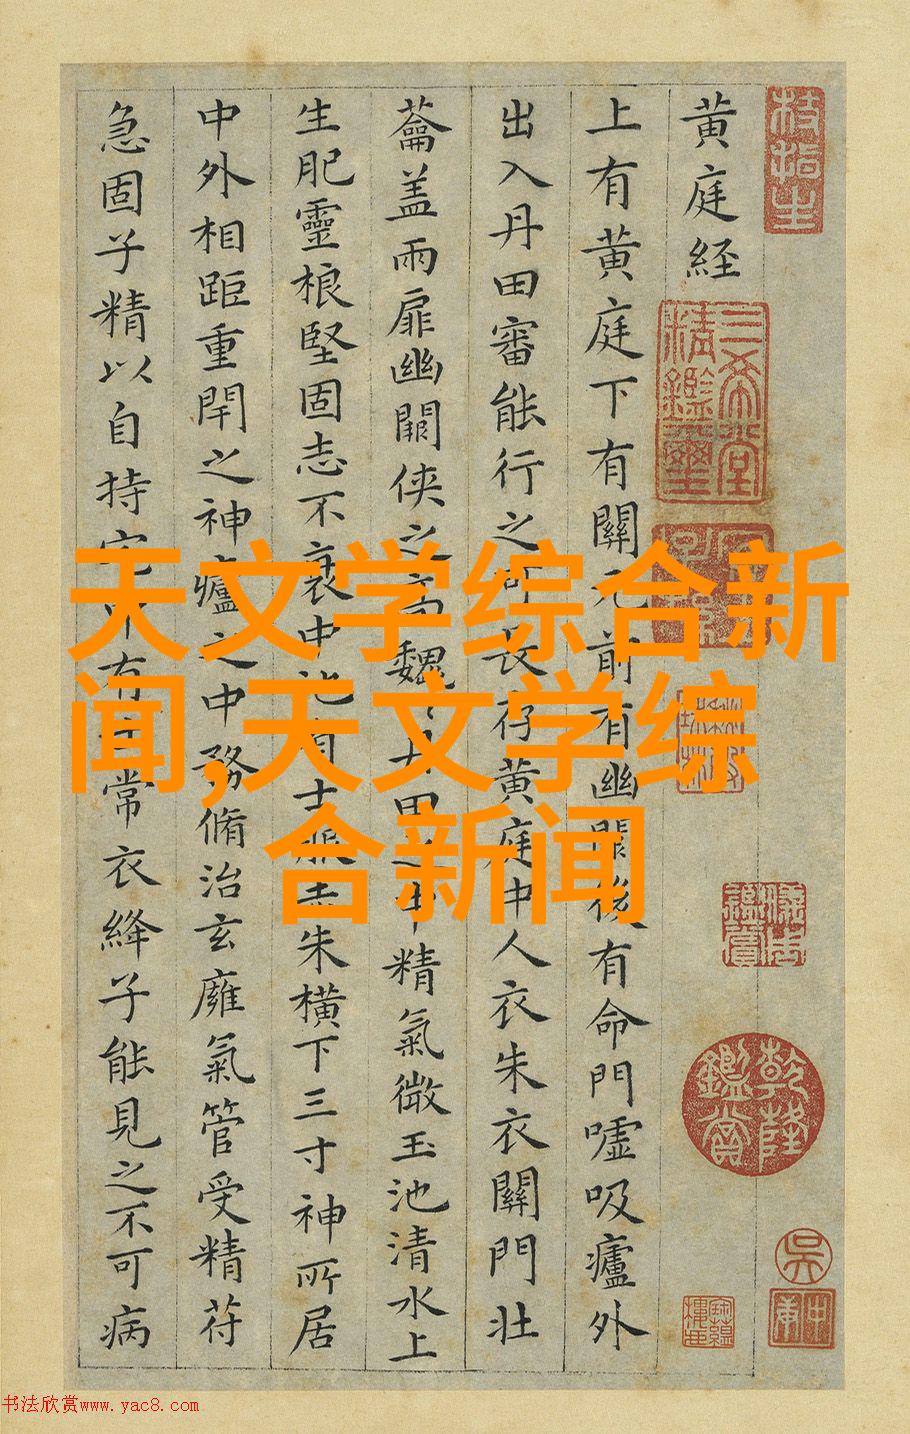 天文学综合新
闻,天文学综
合新闻
枝指生
黄庭経
三希堂精鑑璽
乾隆鑑賞
吳
上有黄庭下有關元前有幽闕後有命門嘘吸廬外
出入丹田審能行之可長存黄庭中人衣朱衣關門壯
蘥盖兩扉幽闕俠之高巍〻丹田之中精氣微玉池清水上
生肥靈根堅固志不衰中池有士服赤朱橫下三寸神所居
中外相距重閇之神廬之中務脩治玄廱氣管受精苻
急固子精以自持宅中有士常衣絳子能見之不可病
书法欣赏www.yac8.com